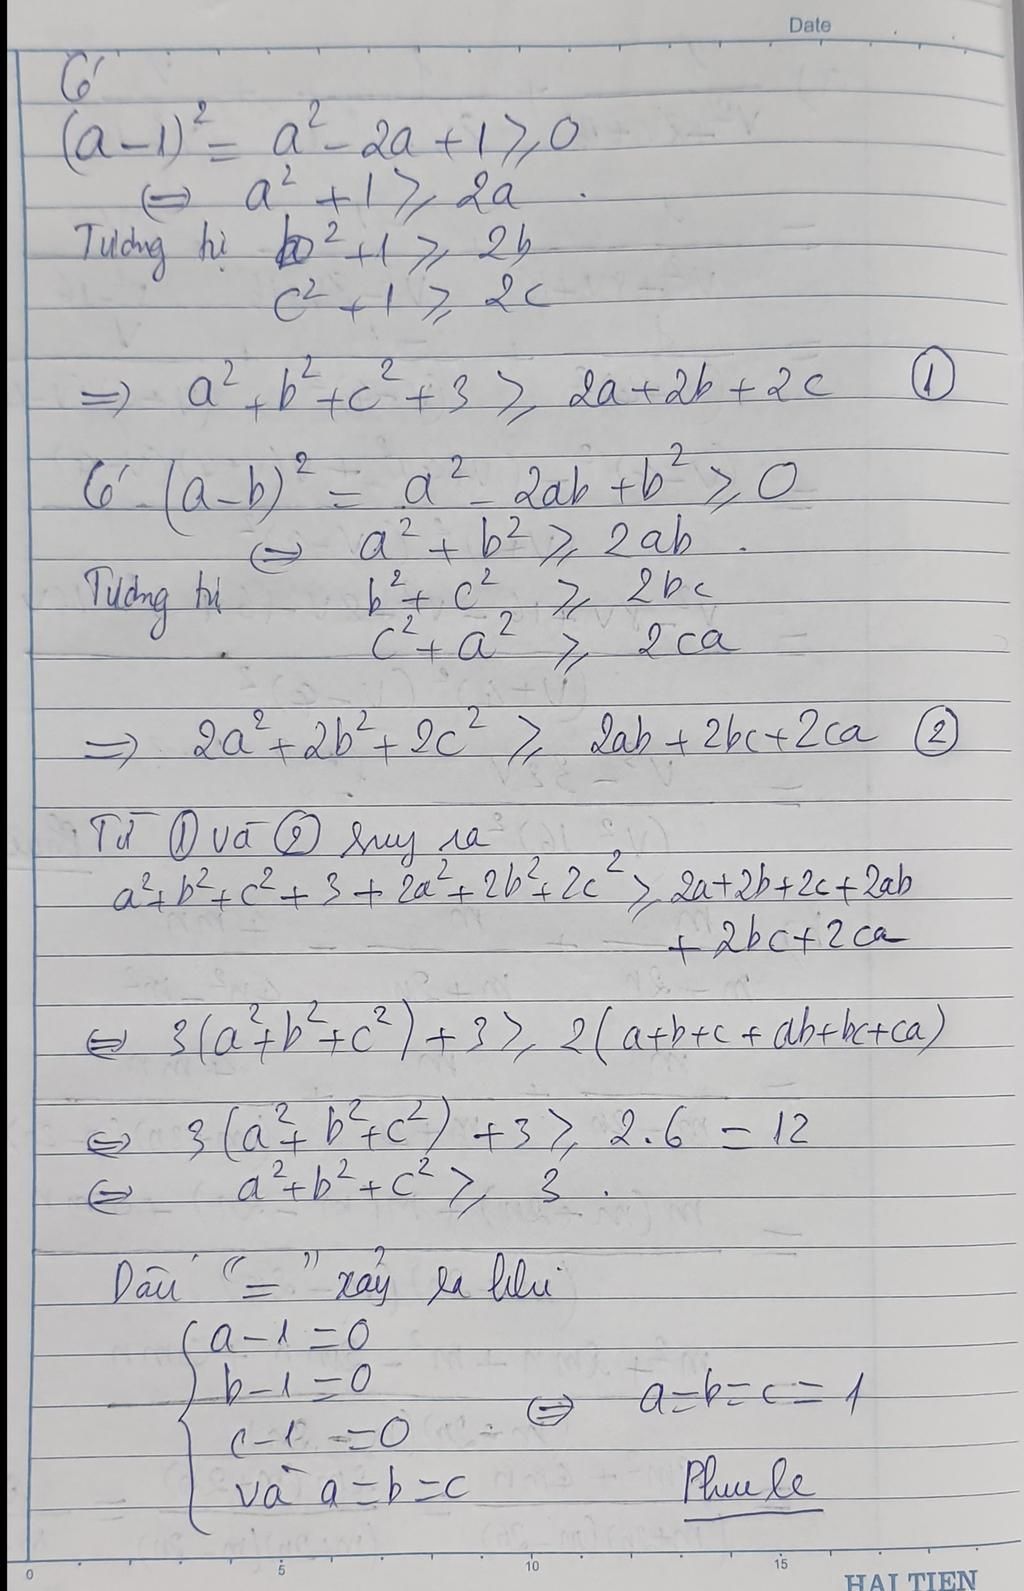 Date
Có
(a-1)² = a² - 2a + 1 ⩾ 0
⇔ a² + 1 ⩾ 2a .
Tương tự b² + 1 ⩾ 2b
c² + 1 ⩾ 2c
⇒ a² + b² + c² + 3 ⩾ 2a + 2b + 2c ①
Có (a-b)² = a² - 2ab + b² ⩾ 0
⇔ a² + b² ⩾ 2ab .
Tương tự b² + c² ⩾ 2bc
c² + a² ⩾ 2ca
⇒ 2a² + 2b² + 2c² ⩾ 2ab + 2bc + 2ca ②
Từ ① và ② suy ra
a² + b² + c² + 3 + 2a² + 2b² + 2c² ⩾ 2a + 2b + 2c + 2ab
+ 2bc + 2ca
⇔ 3(a² + b² + c²) + 3 ⩾ 2(a + b + c + ab + bc + ca)
⇔ 3(a² + b² + c²) + 3 ⩾ 2.6 = 12
⇔ a² + b² + c² ⩾ 3 .
Dấu "=" xảy ra khi
a - 1 = 0
b - 1 = 0
c - 1 = 0
⇔ a = b = c = 1
và a = b = c
Phuc le
0 5 10 15
HAI TIEN